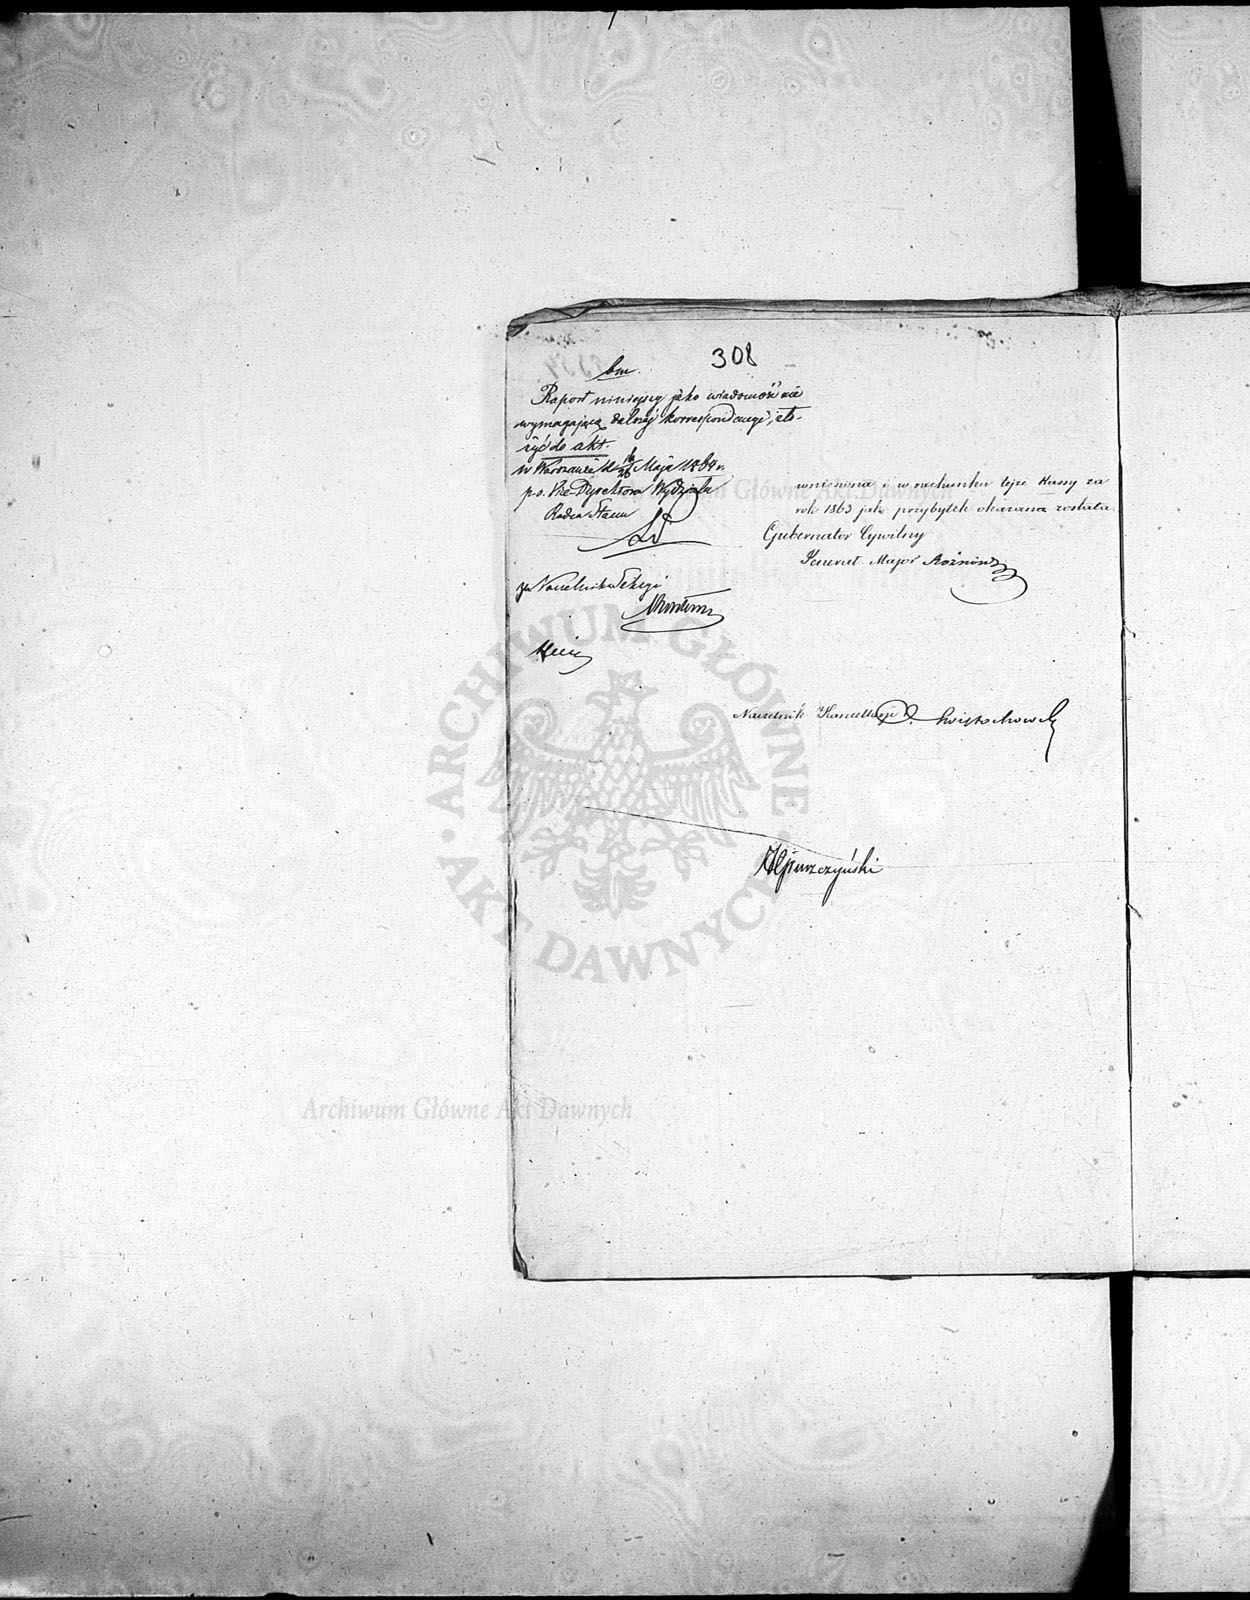 308
bm.
Raport niniejszy jako wiadomość nie
wymagającą dalszej korrespondencyi, zło-
żyć do akt.
w Warszawie d. 14/26 Maja 1864 r.
p.o. Vice-Dyrektora Wydziału
Radca Stanu
za Naczelnika Sekcyi
wniesiona i w rachunku tejże Kassy za
rok 1863 jako przybytek okazana została.
Gubernator Cywilny
Jenerał Major Rożnow
Naczelnik Kancellaryi Świętochowski
ARCHIWUM GŁÓWNE AKT DAWNYCH
Archiwum Główne Akt Dawnych
Archiwum Główne Akt Dawnych